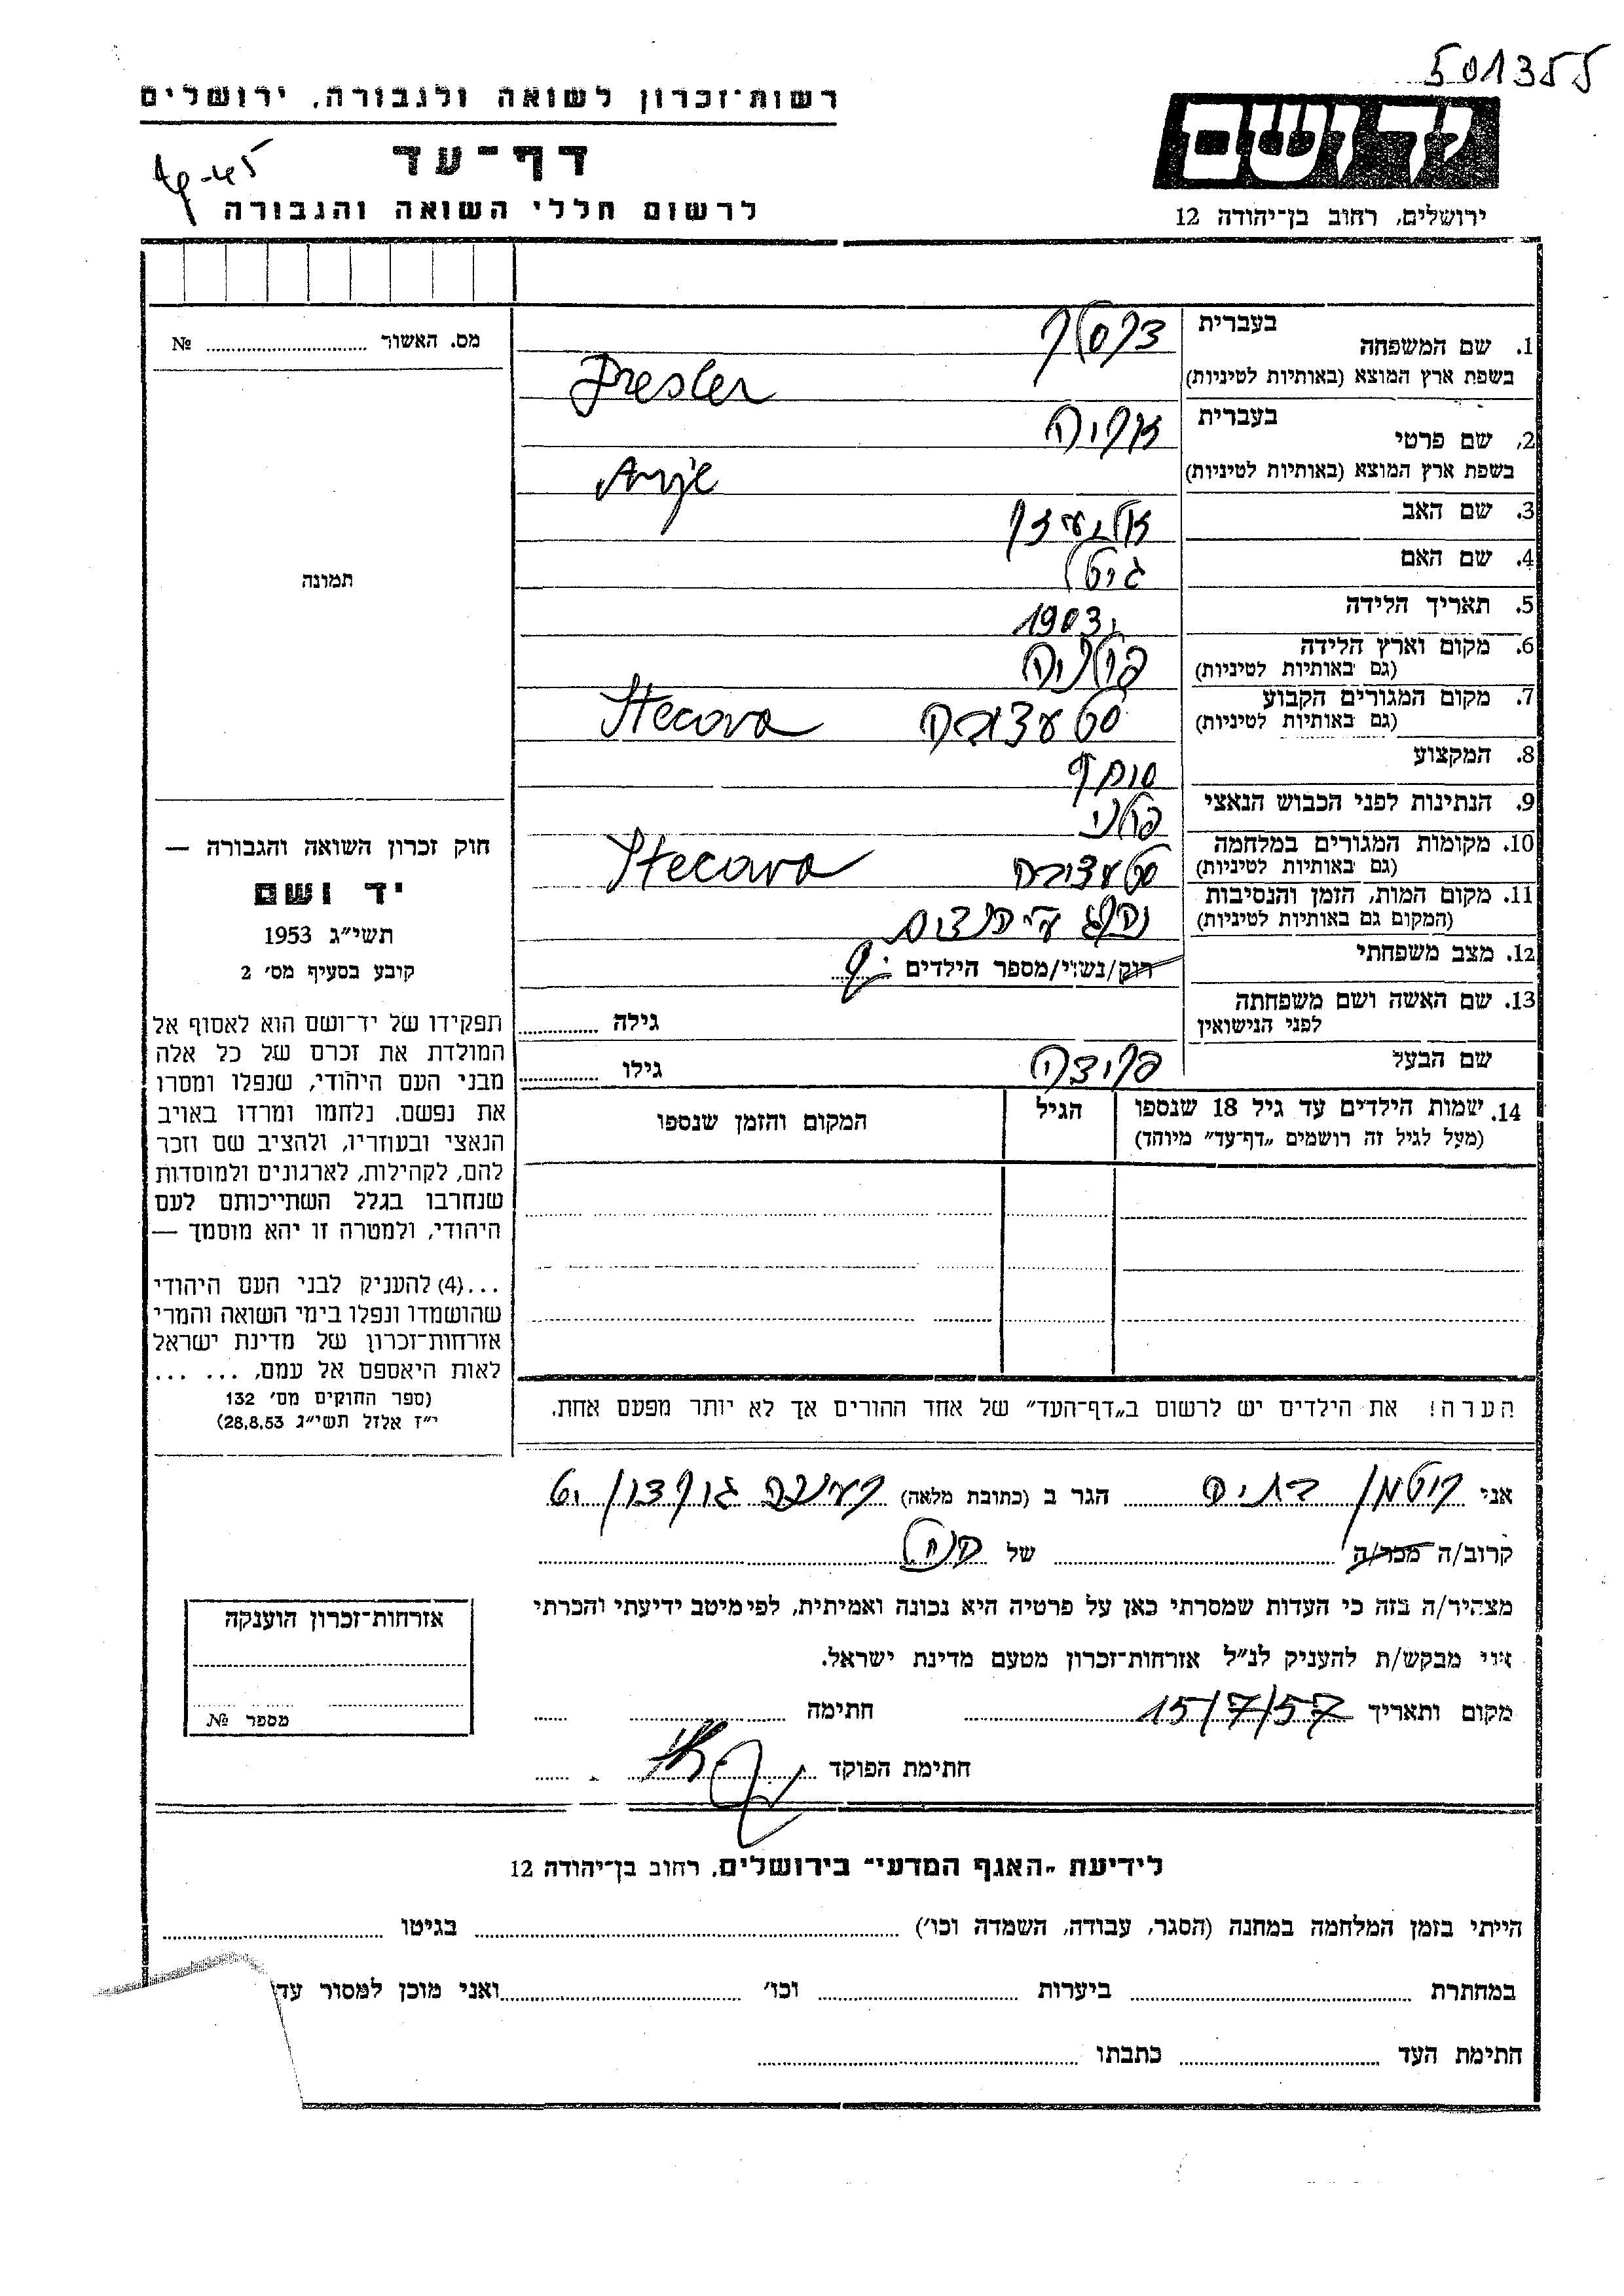 501355
רשות־זכרון לשואה ולגבורה, ירושלים
יד ושם
דף־עד
לרשום חללי השואה והגבורה
ירושלים, רחוב בן־יהודה 12
מס. האשור № 
1. שם המשפחה
בעברית
דרסלר
בשפת ארץ המוצא (באותיות לטיניות)
Dresler
2. שם פרטי
בעברית
אריה
בשפת ארץ המוצא (באותיות לטיניות)
Arje
3. שם האב
אליעזר
4. שם האם
גיטל
5. תאריך הלידה
1903
6. מקום וארץ הלידה
(גם באותיות לטיניות)
פולניה
7. מקום המגורים הקבוע
(גם באותיות לטיניות)
Stecova
8. המקצוע
סוחר
9. הנתינות לפני הכבוש הנאצי
פולני
10. מקומות המגורים במלחמה
(גם באותיות לטיניות)
Stecova
11. מקום המות, הזמן והנסיבות
(המקום גם באותיות לטיניות)
נהרג ע"י הנאצים
12. מצב משפחתי
רוק/נשוי/מספר הילדים
13. שם האשה ושם משפחתה
לפני הנישואין
גילה
שם הבעל
פרידה
גילו
14. שמות הילדים עד גיל 18 שנספו
(מעל לגיל זה רושמים „דף־עד” מיוחד)
הגיל
המקום והזמן שנספו
תמונה
חוק זכרון השואה והגבורה —
יד ושם
תשי״ג 1953
קובע בסעיף מס׳ 2
תפקידו של יד־ושם הוא לאסוף אל
המולדת את זכרם של כל אלה
מבני העם היהודי, שנפלו ומסרו
את נפשם, נלחמו ומרדו באויב
הנאצי ובעוזריו, ולהציב שם וזכר
להם, לקהילות, לארגונים ולמוסדות
שנחרבו בגלל השתייכותם לעם
היהודי, ולמטרה זו יהא מוסמך —
...(4) להעניק לבני העם היהודי
שהושמדו ונפלו בימי השואה והמרי
אזרחות־זכרון של מדינת ישראל
לאות היאספם אל עמם, ... ...
(ספר החוקים מס׳ 132
י״ז אלול תשי״ג 28.8.53)
הערה! את הילדים יש לרשום ב„דף־העד” של אחד ההורים אך לא יותר מפעם אחת.
אני הגר ב (כתובת מלאה) רעננה
קרוב/ה מכר/ה של הנ"ל
מצהיר/ה בזה כי העדות שמסרתי כאן על פרטיה היא נכונה ואמיתית, לפי מיטב ידיעתי והכרתי
אני מבקש/ת להעניק לנ״ל אזרחות־זכרון מטעם מדינת ישראל.
מקום ותאריך 15/7/57 חתימה
חתימת הפוקד
אזרחות־זכרון הוענקה
מספר №
לידיעת „האגף המדעי” בירושלים, רחוב בן־יהודה 12
הייתי בזמן המלחמה במחנה (הסגר, עבודה, השמדה וכו׳) בגיטו
במחתרת ביערות וכו׳ ואני מוכן למסור
חתימת העד כתבתו